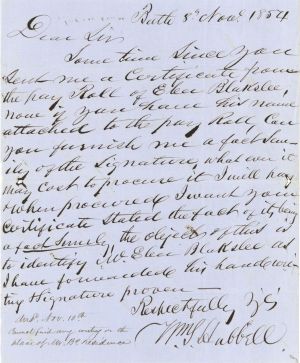 Bath 8th Novr 1854
Dear Sir
Some time since you
send me a Certificate from
the pay Roll of Elen Blakslee,
now if you have his name
attached to the pay Roll, Can
you furnish me a fact Sim-
ily of the Signature, what ever it
may cost to procure it I will pay
& when procured I want your
Certificate stated the fact of its being
a fact Simily the object of this is
to identify Elen Blakslee as
I have his handwri-
ting & Signature proven
Respectfully Yrs
Wm S. Hubbell
Novr. 10th
find any
place of Mr. Bs Residence